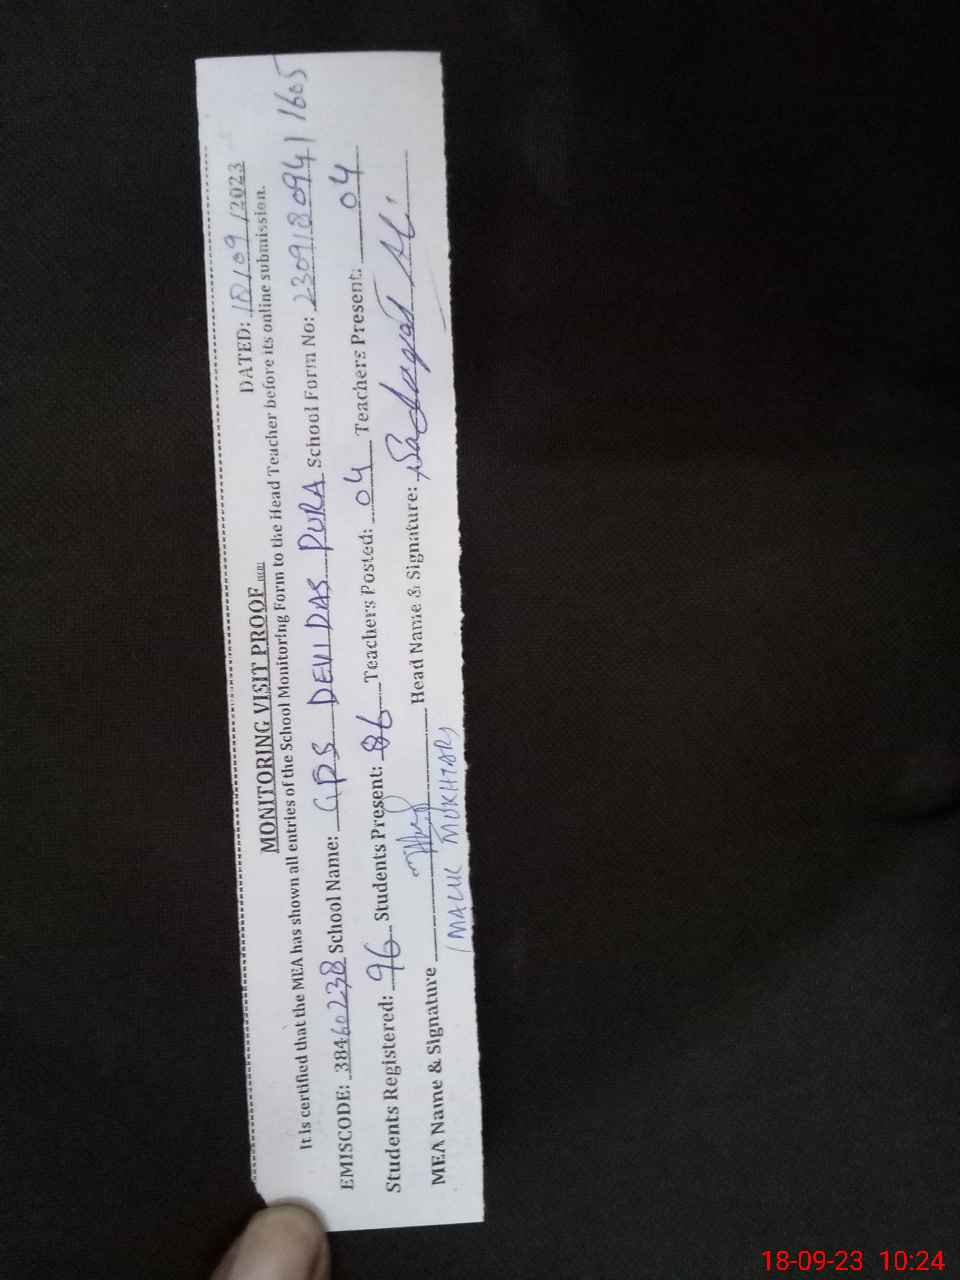 DATED: 18/09/2023
MONITORING VISIT PROOF
It is certified that the MEA has shown all entries of the School Monitoring Form to the Head Teacher before its online submission.
EMISCODE: 38460238 School Name: GPS DEVIDAS PURA School Form No: 23091809411605
Students Registered: 96 Students Present: 86 Teachers Posted: 04 Teachers Present: 04
MEA Name & Signature Head Name & Signature: Sadaqat Ali
(MALIK MUKHTAR)
18-09-23 10:24